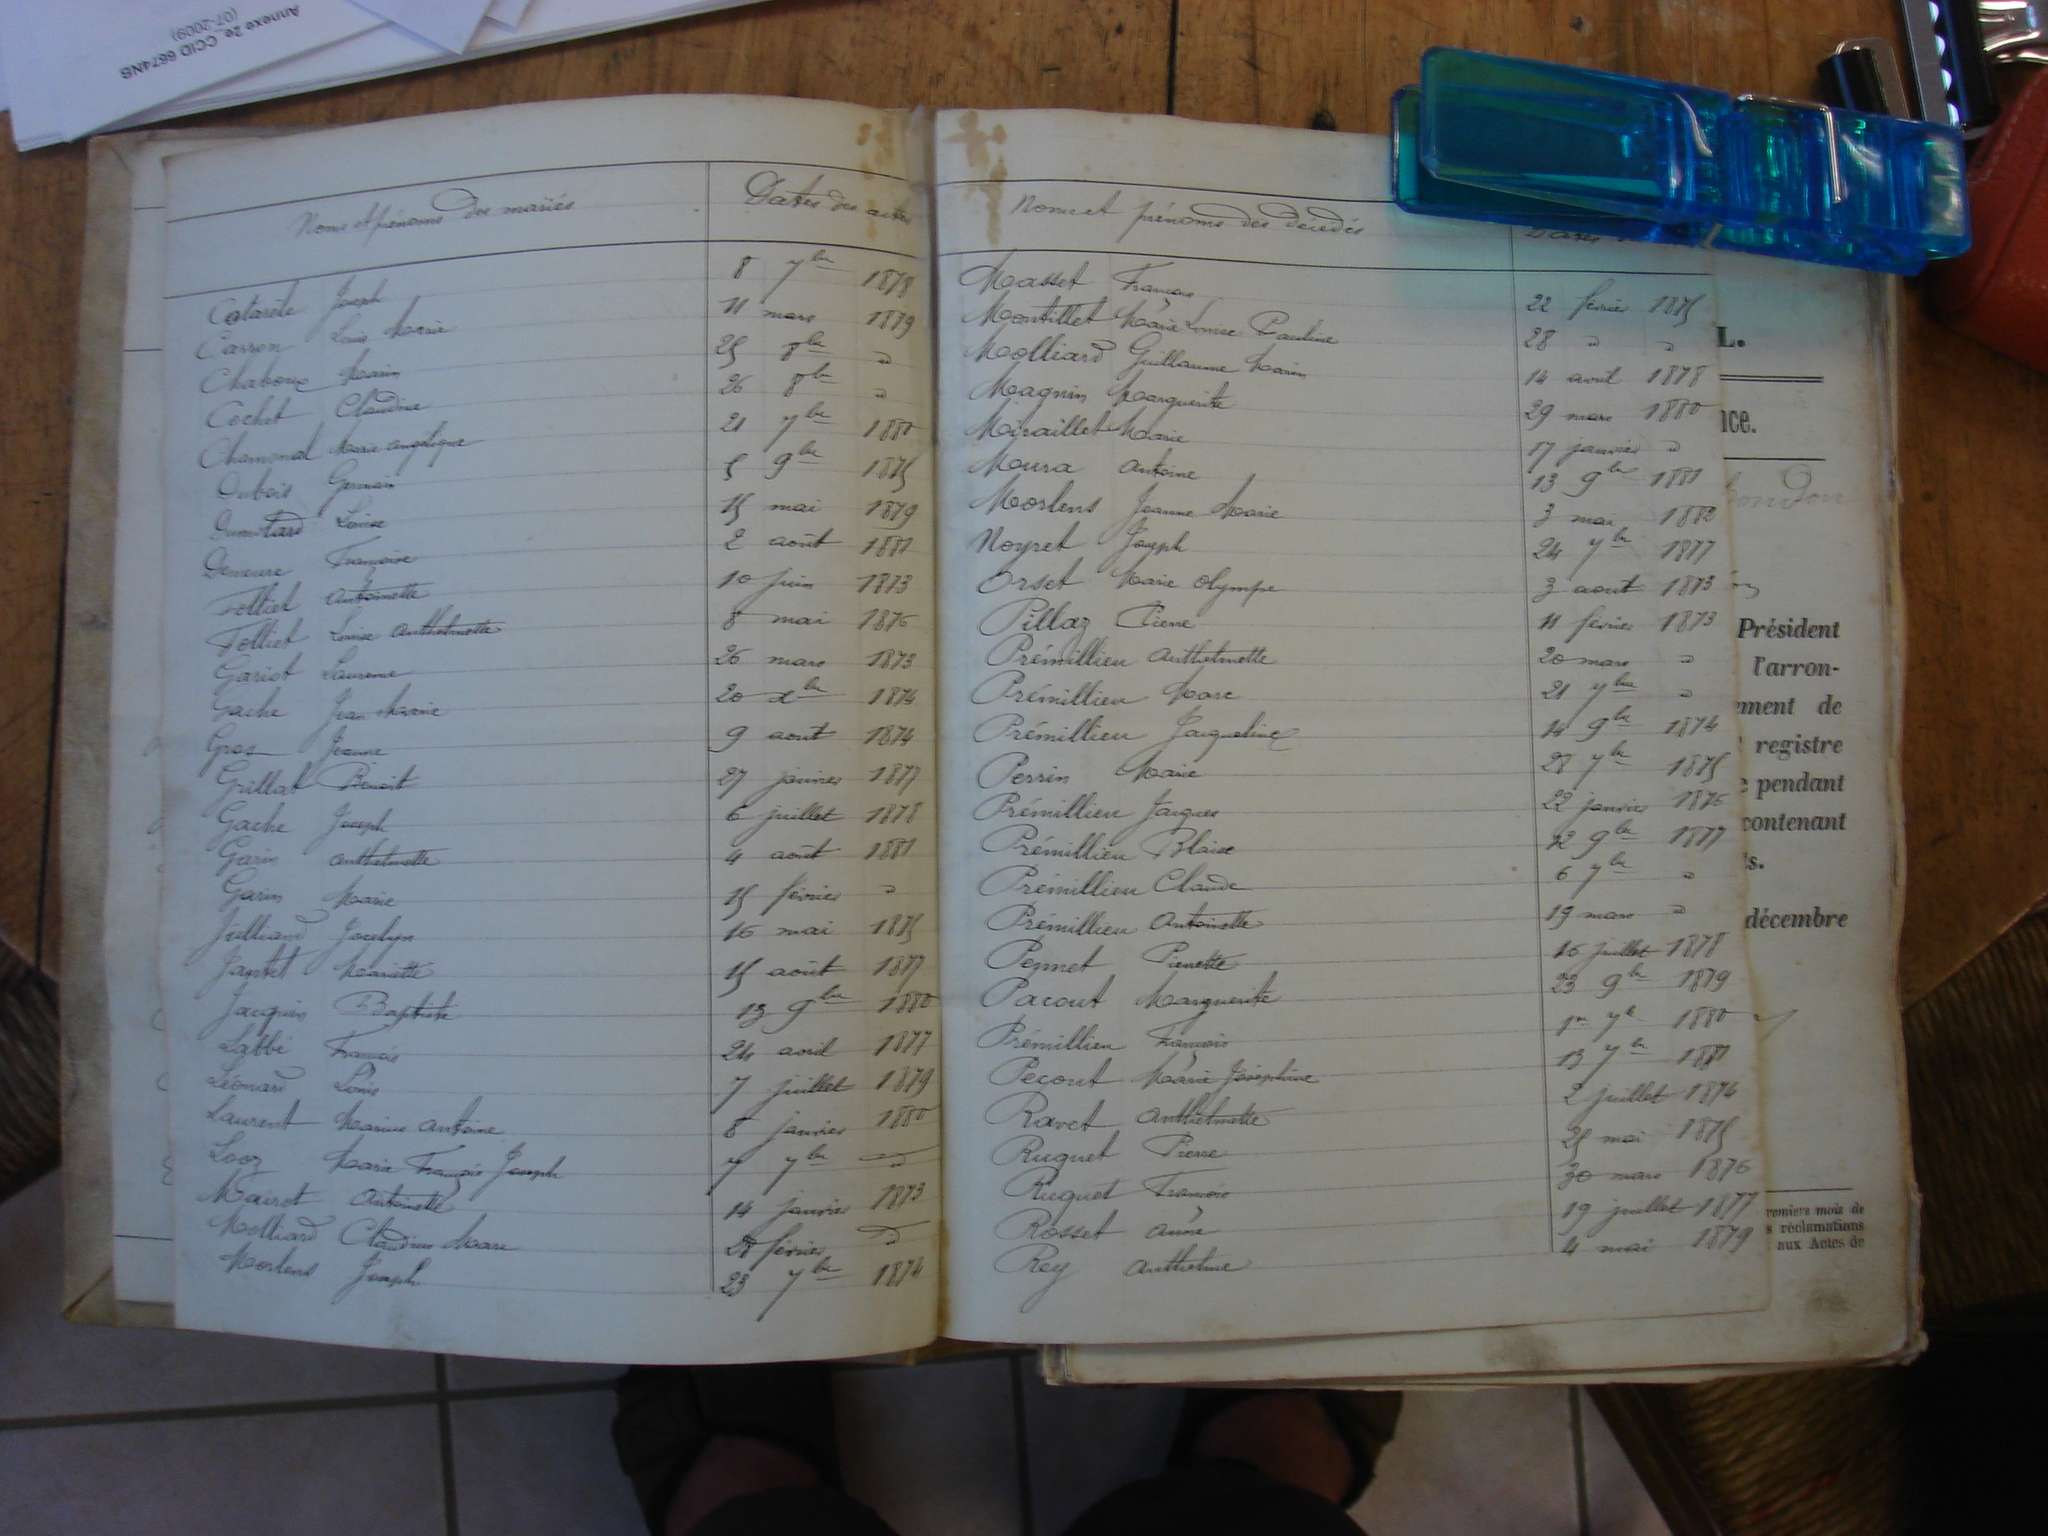 Annexe 2e_CCID 6674NB
(07-2009)
Noms et prénoms des mariés Dates des actes
Catarele Joseph 8 7bre 1878
Carron Louis Marie 11 mars 1879
Chaboux Marin 25 8bre "
Cochet Claudine 26 8bre "
Chamonal Marie angélique 21 7bre 1880
Dubois Germain 5 9bre 1875
Dumottard Louise 15 mai 1879
Demeure Françoise 2 août 1881
Folliet Antoinette 10 juin 1873
Folliet Louise anthelmette 8 mai 1876
Gariot Laurence 26 mars 1873
Gache Jean Marie 20 xbre 1874
Gros Jeanne 9 aout 1874
Grillat Benoit 27 janvier 1877
Gache Joseph 6 juillet 1878
Garin anthelmette 4 août 1881
Garin Marie 15 février "
Julliand Jocelyn 16 mai 1875
Jantet Mariette 15 août 1877
Jacquin Baptiste 13 9bre 1880
Labbé François 24 avril 1877
Léonard Louis 7 juillet 1879
Laurent Marius antoine 8 janvier 1880
Looz Marie François Joseph 7 7bre "
Mairot Antoinette 14 janvier 1873
Molliard Claudius Marc 28 février "
Morlens Joseph 23 7bre 1874
Noms et prénoms des décédés
Masset François 22 février 1875
Montillet Marie Louise Pauline 28 " "
Molliard Guillaume Marin 14 aout 1878
Magnin Marguerite 29 mars 1880
Miraillet Marie 17 janvier "
Moura antoine 13 9bre 1881
Morlens Jeanne Marie 3 mai 1882
Noyret Joseph 24 7bre 1877
Orset Marie olympe 3 aout 1873
Pillaz Pierre 11 février 1873
Prémillieu anthelmette 20 mars "
Prémillieu Marc 21 7bre "
Prémillieu Jacqueline 14 9bre 1874
Perrin Marie 28 7bre 1875
Prémillieu Jacques 22 janvier 1876
Prémillieu Blaise 12 9bre 1877
Prémillieu Claude 6 7bre "
Prémillieu Antoinette 19 mars "
Pennet Pierrette 16 juillet 1878
Pacout Marguerite 23 9bre 1879
Prémillieu François 1er 7bre 1880
Pecout Marie Joséphine 13 7bre 1881
Ravet anthelmette 2 juillet 1874
Ruguet Pierre 25 mai 1875
Ruguet François 30 mars 1876
Rosset anne 19 juillet 1877
Rey anthelme 4 mai 1879
L.
nce.
Président
l'arron-
ement de
registre
e pendant
contenant
ts.
décembre
remiers mois de
s réclamations
aux Actes de